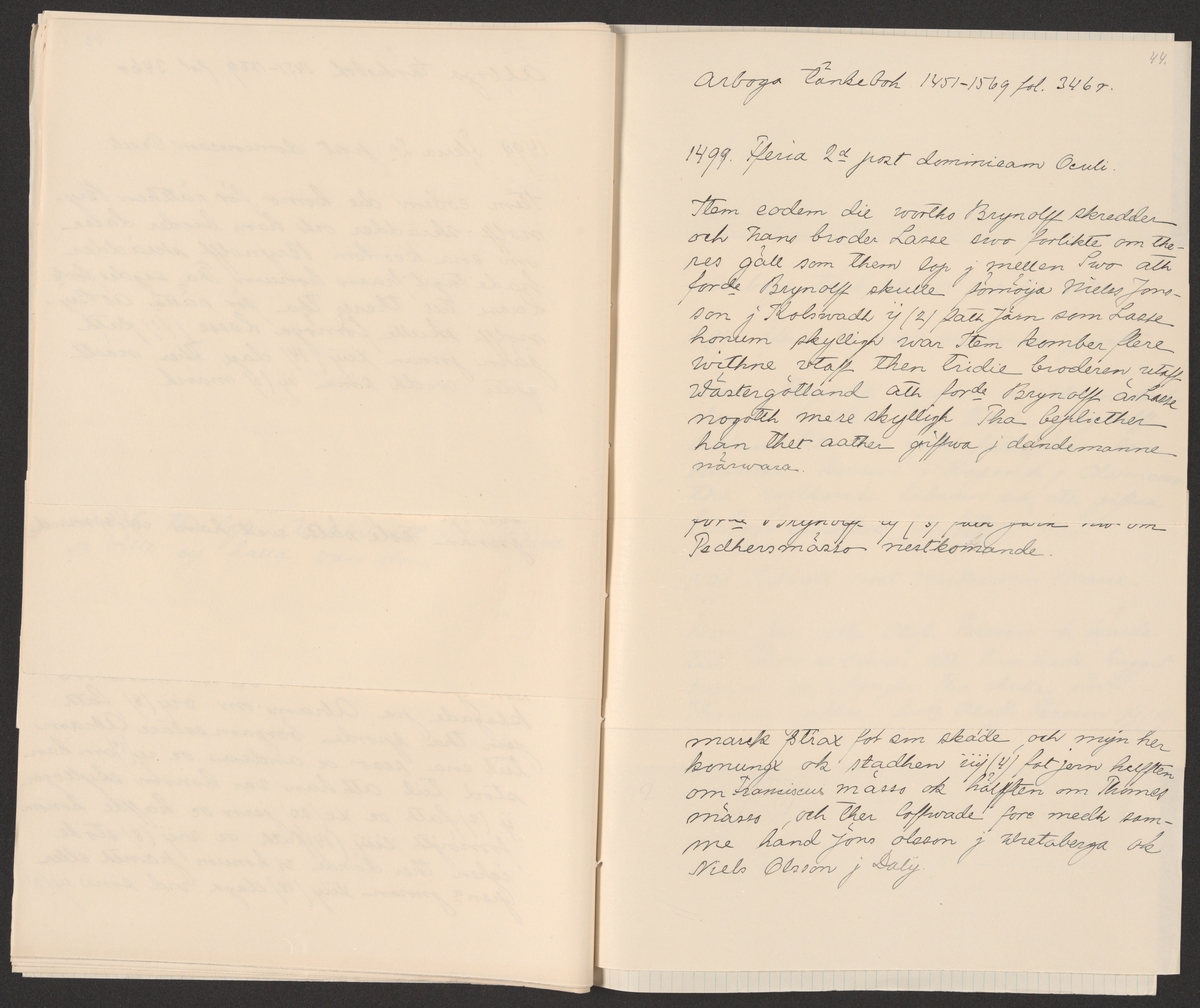 44.
Arboga Tänkebok 1451-1569 fol. 346 r.
1499. Fferia 2d post dominicam Oculi.
Item eodem die wortho Brynolff skredder
och hans broder Lasse swo forlikte om the-
res gäll som them lop j mellen Swo ath
forde Brynolff skulle förnöija Niels Jons-
son j Kolswadh ij (2) fath Järn som Lasse
honum skylligh war Item komber flere
withne vtaff then tridie broderen utaff
Wästergötland ath forde Brynolff är Lasse
nogoth mere skylligh Tha beplicther
han thet aather giffwa j dandemanne
närwara.
forde Brynolff ij fath järn om
Pedhersmässo nestkomande.
marck strax for em skäde, och mijn her
konungx ok stadhen iiij (4) fat jern helfften
om Franciscus mässo ok hälfften om Thomes
mässo, och ther loffwade fore medh sam-
me hand Jöns olsson j Wretaberga ok
Niels Olsson j Daly.